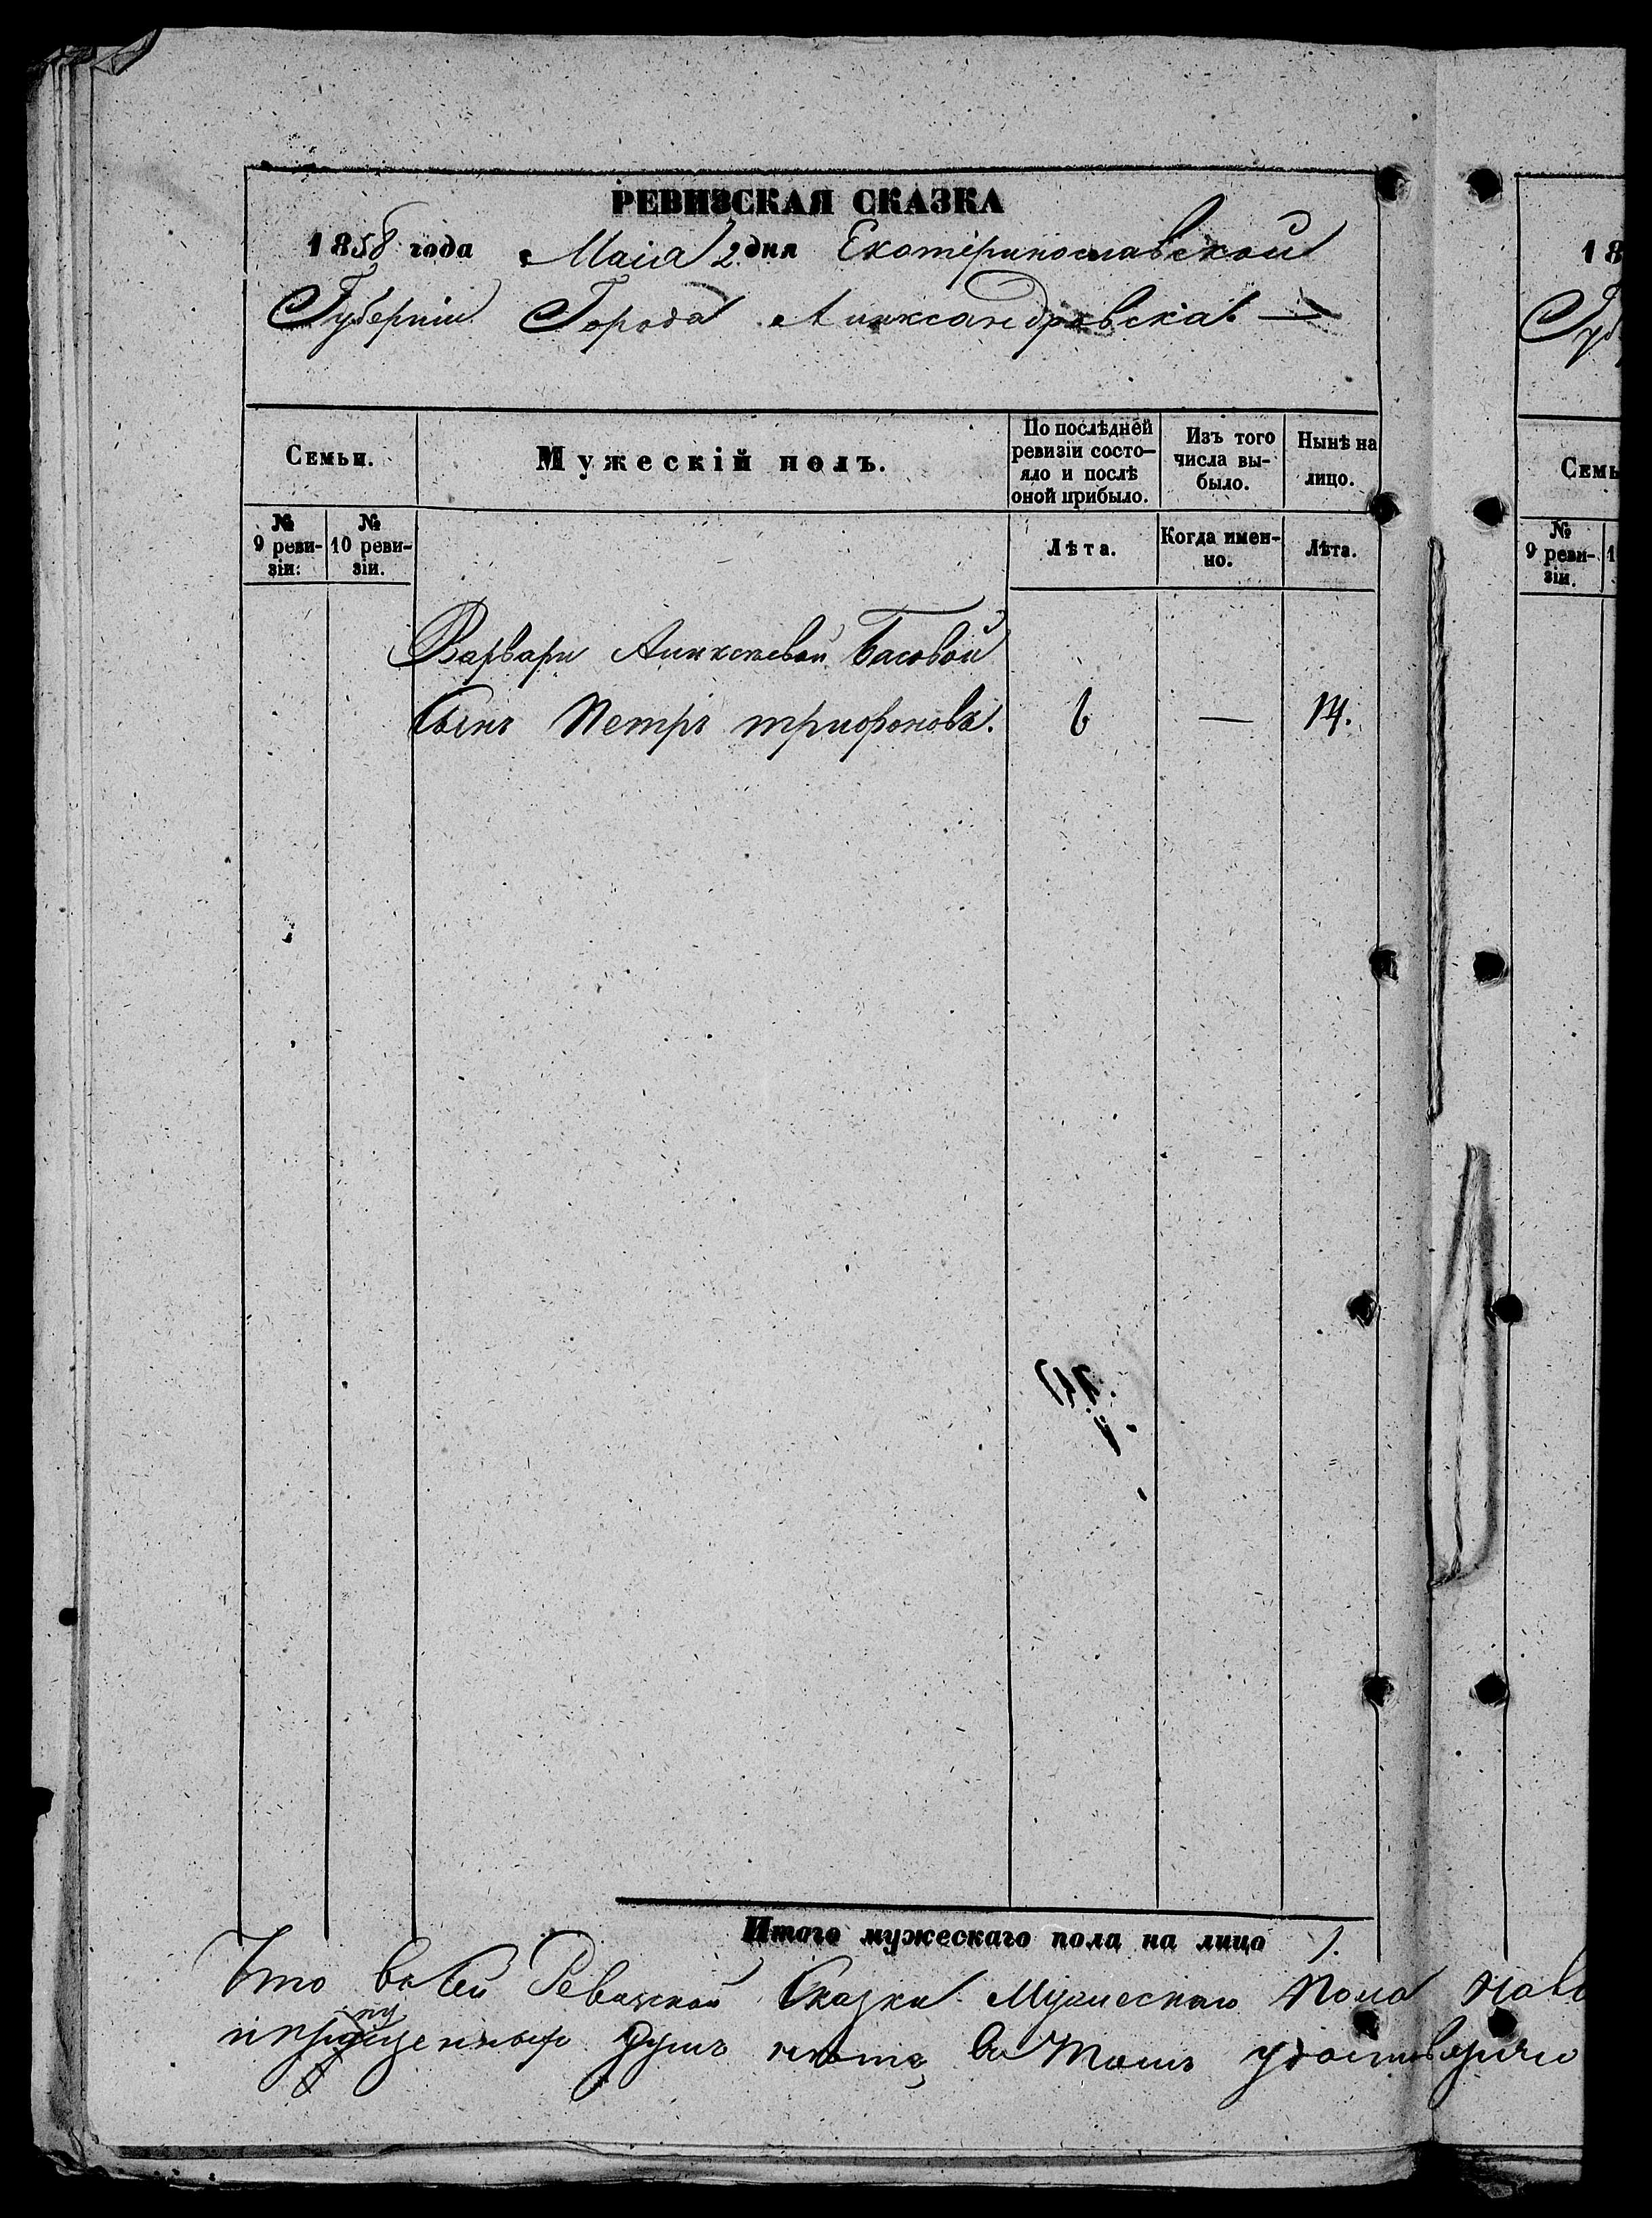 РЕВИЗСКАЯ СКАЗКА
1858 года Маія 2 дня Екатеринославской
Губерніи Города Александровска. —
Семьи.
Мужескій полъ.
По послѣдней ревизіи состо-
яло и послѣ
оной прибыло.
Изъ того
числа вы-
было.
Нынѣ на
лицо.
№
9 реви-
зіи.
№
10 реви-
зіи.
Лѣта.
Когда имен-
но.
Лѣта.
Варвары Алексѣевой Басовой
Сынъ Петръ трифоновъ. 6 — 14.
Итого мужескаго пола на лицо 1.
Что въ сей Ревизской Сказки Мужескаго Пола
пропущенныхъ душъ нѣтъ, Въ томъ удостовѣряю
18
Губ
Семь
№
9 реви-
зіи.
1